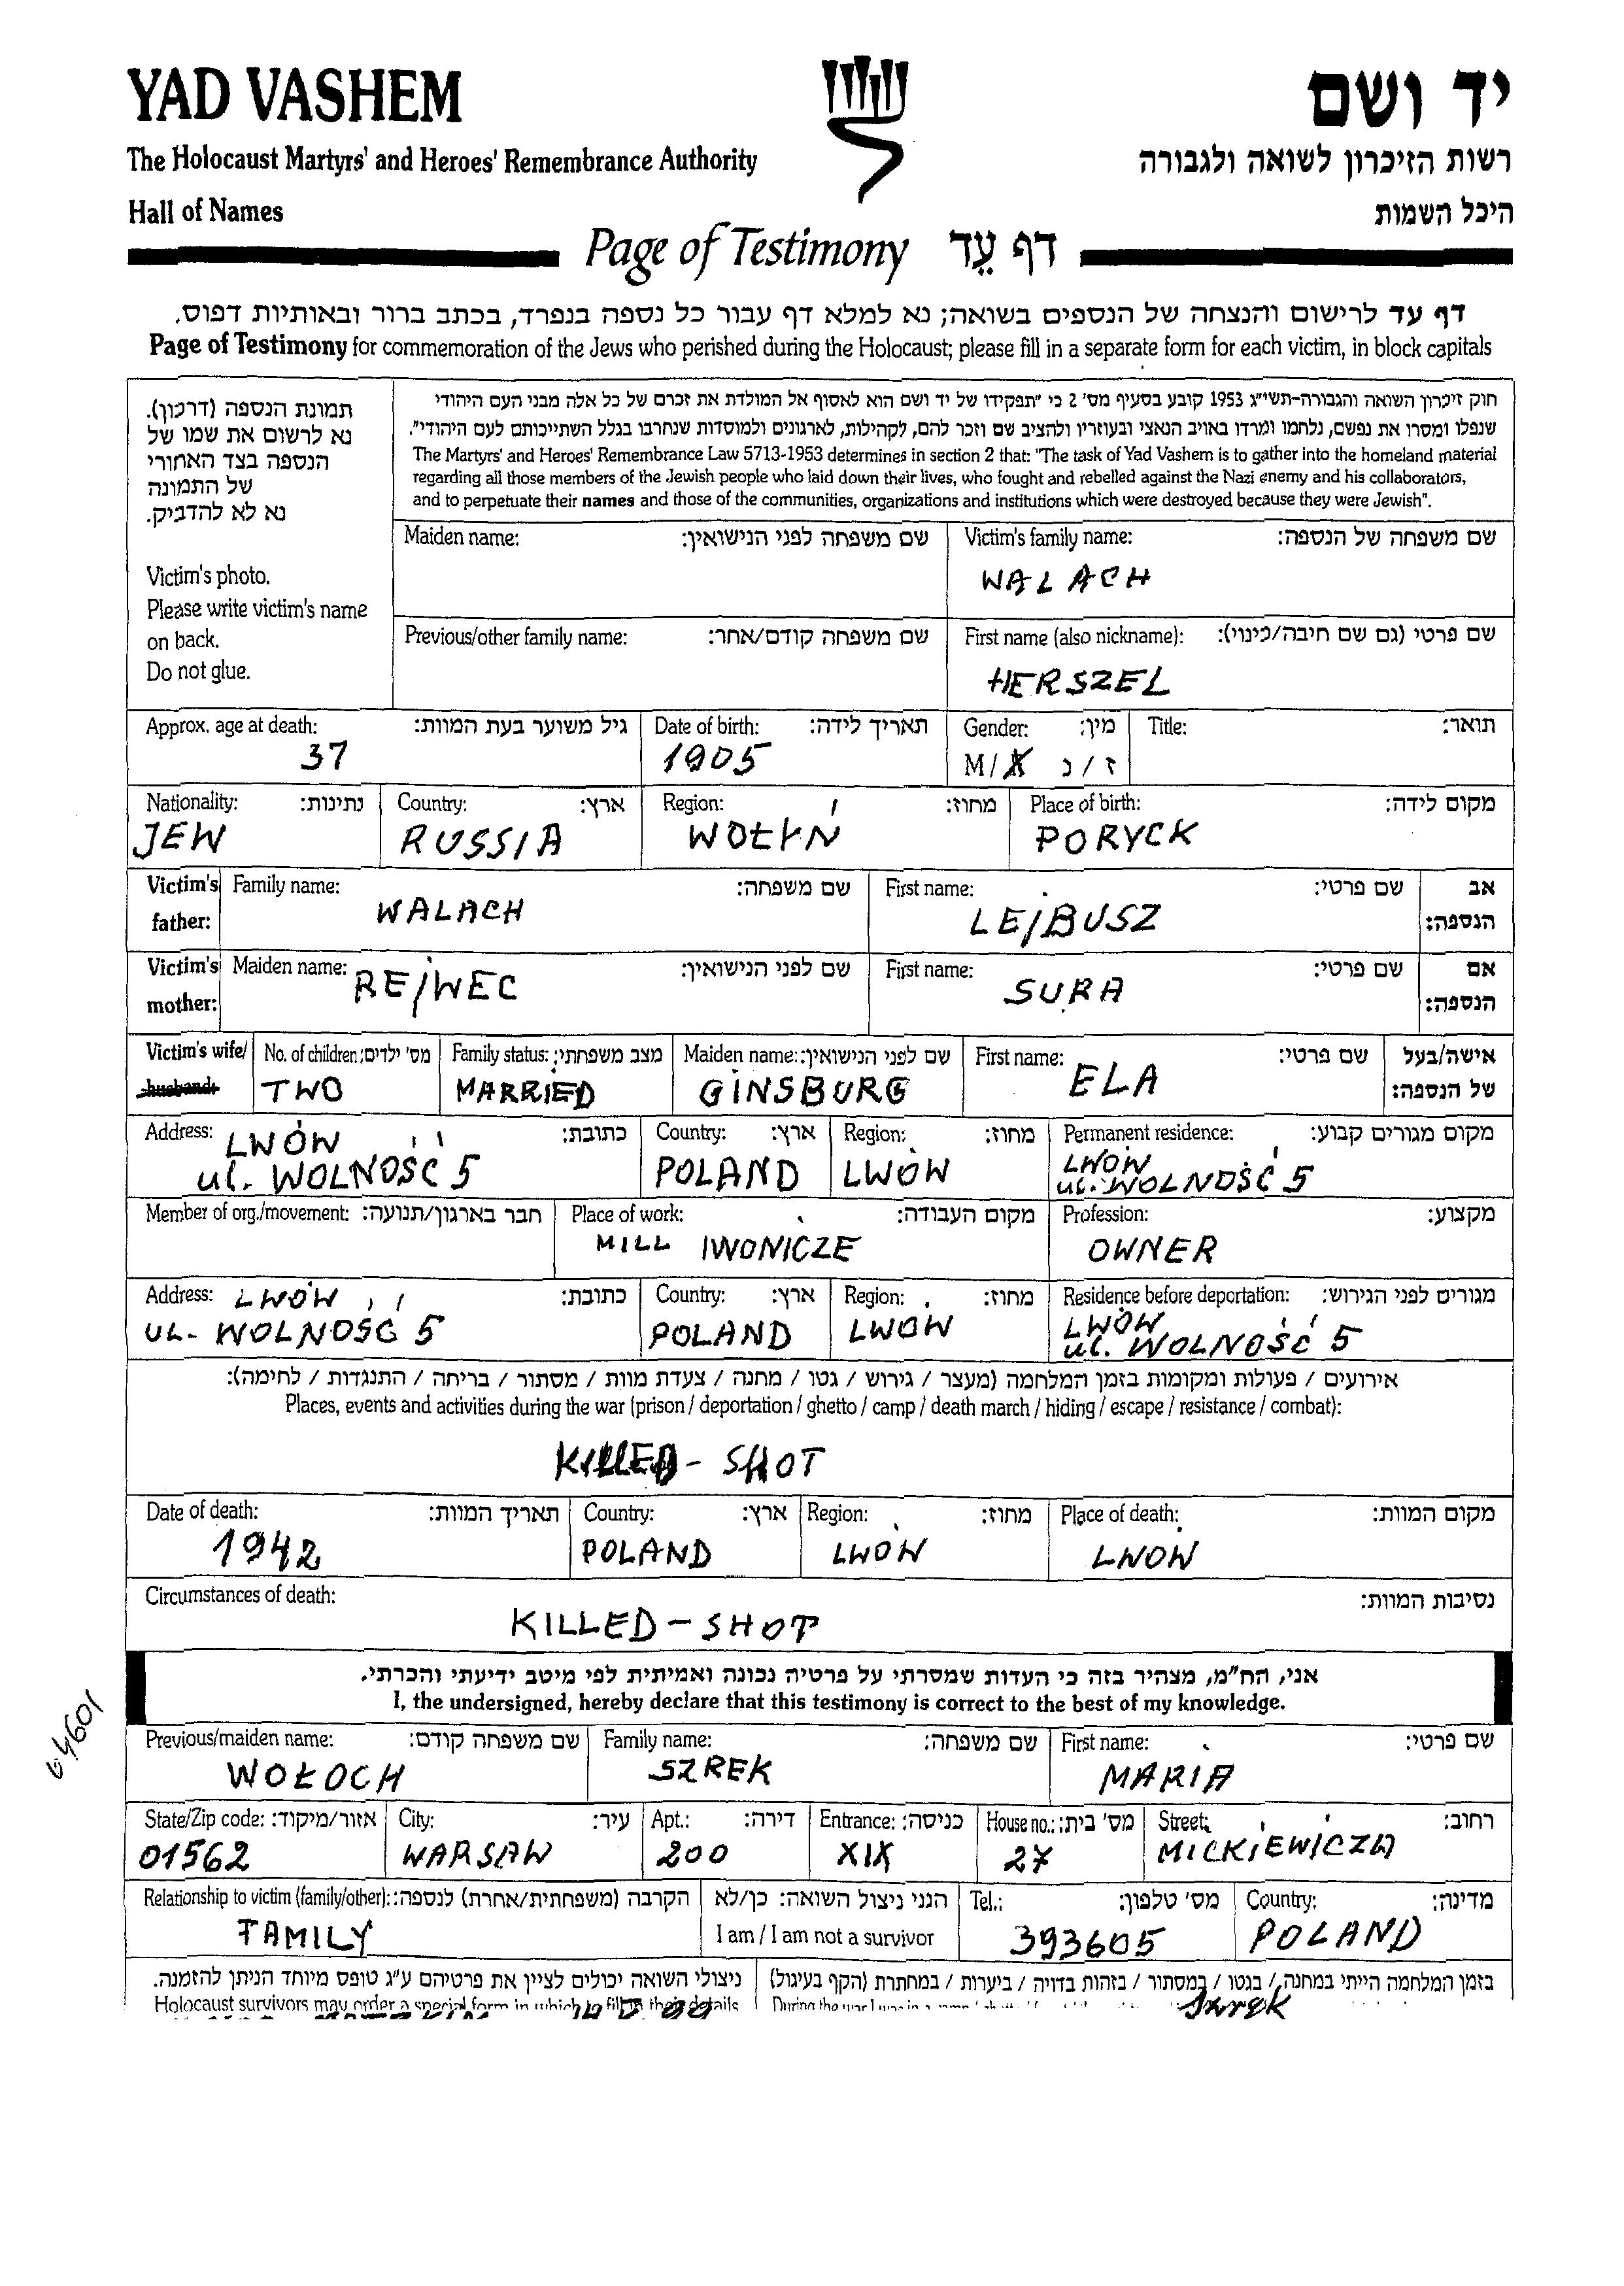 YAD VASHEM
יד ושם
The Holocaust Martyrs' and Heroes' Remembrance Authority
רשות הזיכרון לשואה ולגבורה
Hall of Names
היכל השמות
Page of Testimony דף עֵד
דף עד לרישום והנצחה של הנספים בשואה; נא למלא דף עבור כל נספה בנפרד, בכתב ברור ובאותיות דפוס.
Page of Testimony for commemoration of the Jews who perished during the Holocaust; please fill in a separate form for each victim, in block capitals
תמונת הנספה (דרכון).
נא לרשום את שמו של
הנספה בצד האחורי
של התמונה
נא לא להדביק.
Victim's photo.
Please write victim's name
on back.
Do not glue.
חוק זיכרון השואה והגבורה-תשי"ג 1953 קובע בסעיף מס' 2 כי "תפקידו של יד ושם הוא לאסוף אל המולדת את זכרם של כל אלה מבני העם היהודי
שנפלו ומסרו את נפשם, נלחמו ומרדו באויב הנאצי ובעוזריו ולהציב שם וזכר להם, לקהילות, לארגונים ולמוסדות שנחרבו בגלל השתייכותם לעם היהודי".
The Martyrs' and Heroes' Remembrance Law 5713-1953 determines in section 2 that: "The task of Yad Vashem is to gather into the homeland material
regarding all those members of the Jewish people who laid down their lives, who fought and rebelled against the Nazi enemy and his collaborators,
and to perpetuate their names and those of the communities, organizations and institutions which were destroyed because they were Jewish".
Maiden name: שם משפחה לפני הנישואין:
Victim's family name: שם משפחה של הנספה:
WALACH
Previous/other family name: שם משפחה קודם/אחר:
First name (also nickname): שם פרטי (גם שם חיבה/כינוי):
HERSZEL
Approx. age at death: גיל משוער בעת המוות:
37
Date of birth: תאריך לידה:
1905
Gender: מין:
M/X ז / נ
Title: תואר:
Nationality: נתינות:
JEW
Country: ארץ:
RUSSIA
Region: מחוז:
WOŁYŃ
Place of birth: מקום לידה:
PORYCK
Victim's father: Family name: שם משפחה:
WALACH
First name: שם פרטי: אב הנספה:
LEJBUSZ
Victim's mother: Maiden name: שם לפני הנישואין:
REJWEC
First name: שם פרטי: אם הנספה:
SURA
Victim's wife/ husband:
No. of children: מס' ילדים:
TWO
Family status: מצב משפחתי:
MARRIED
Maiden name: שם לפני הנישואין:
GINSBURG
First name: שם פרטי: אישה/בעל של הנספה:
ELA
Address: כתובת:
LWÓW
ul. WOLNOŚĆ 5
Country: ארץ:
POLAND
Region: מחוז:
LWÓW
Permanent residence: מקום מגורים קבוע:
LWÓW
ul. WOLNOŚĆ 5
Member of org./movement: חבר בארגון/תנועה:
Place of work: מקום העבודה:
MILL IWONICZE
Profession: מקצוע:
OWNER
Address: כתובת:
LWÓW
UL. WOLNOŚĆ 5
Country: ארץ:
POLAND
Region: מחוז:
LWÓW
Residence before deportation: מגורים לפני הגירוש:
LWÓW
ul. WOLNOŚĆ 5
אירועים / פעולות ומקומות בזמן המלחמה (מעצר / גירוש / גטו / מחנה / צעדת מוות / מסתור / בריחה / התנגדות / לחימה):
Places, events and activities during the war (prison / deportation / ghetto / camp / death march / hiding / escape / resistance / combat):
KILLED - SHOT
Date of death: תאריך המוות:
1942
Country: ארץ:
POLAND
Region: מחוז:
LWÓW
Place of death: מקום המוות:
LWÓW
Circumstances of death: נסיבות המוות:
KILLED - SHOT
אני, הח"מ, מצהיר בזה כי העדות שמסרתי על פרטיה נכונה ואמיתית לפי מיטב ידיעתי והכרתי.
I, the undersigned, hereby declare that this testimony is correct to the best of my knowledge.
Previous/maiden name: שם משפחה קודם:
WOŁOCH
Family name: שם משפחה:
SZREK
First name: שם פרטי:
MARIA
State/Zip code: אזור/מיקוד:
01562
City: עיר:
WARSAW
Apt.: דירה:
200
Entrance: כניסה:
XIX
House no.: מס' בית:
27
Street: רחוב:
MICKIEWICZA
Relationship to victim (family/other): הקרבה (משפחתית/אחרת) לנספה:
FAMILY
הנני ניצול השואה: כן/לא
I am / I am not a survivor
Tel.: מס' טלפון:
393605
Country: מדינה:
POLAND
ניצולי השואה יכולים לציין את פרטיהם ע"ג טופס מיוחד הניתן להזמנה.
Holocaust survivors may order a special form in which to fill in their details
בזמן המלחמה הייתי במחנה / בגטו / במסתור / בזהות בדויה / ביערות / במחתרת (הקף בעיגול)
Szrek